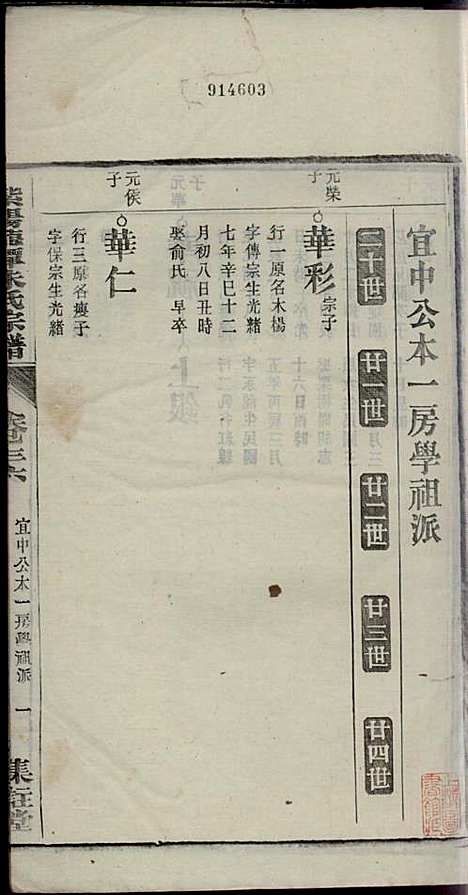 914603
宜中公本一房學祖派
二十世 廿一世 廿二世 廿三世 廿四世
元榮子
華彩 宗子
行一原名木楊
字傳宗生光緒
七年辛巳十二
月初八日丑時
娶俞氏 早卒
元侯子
華仁
行三原名瘦子
字保宗生光緒
朱氏宗譜
卷三六
宜中公本一房學祖派
一